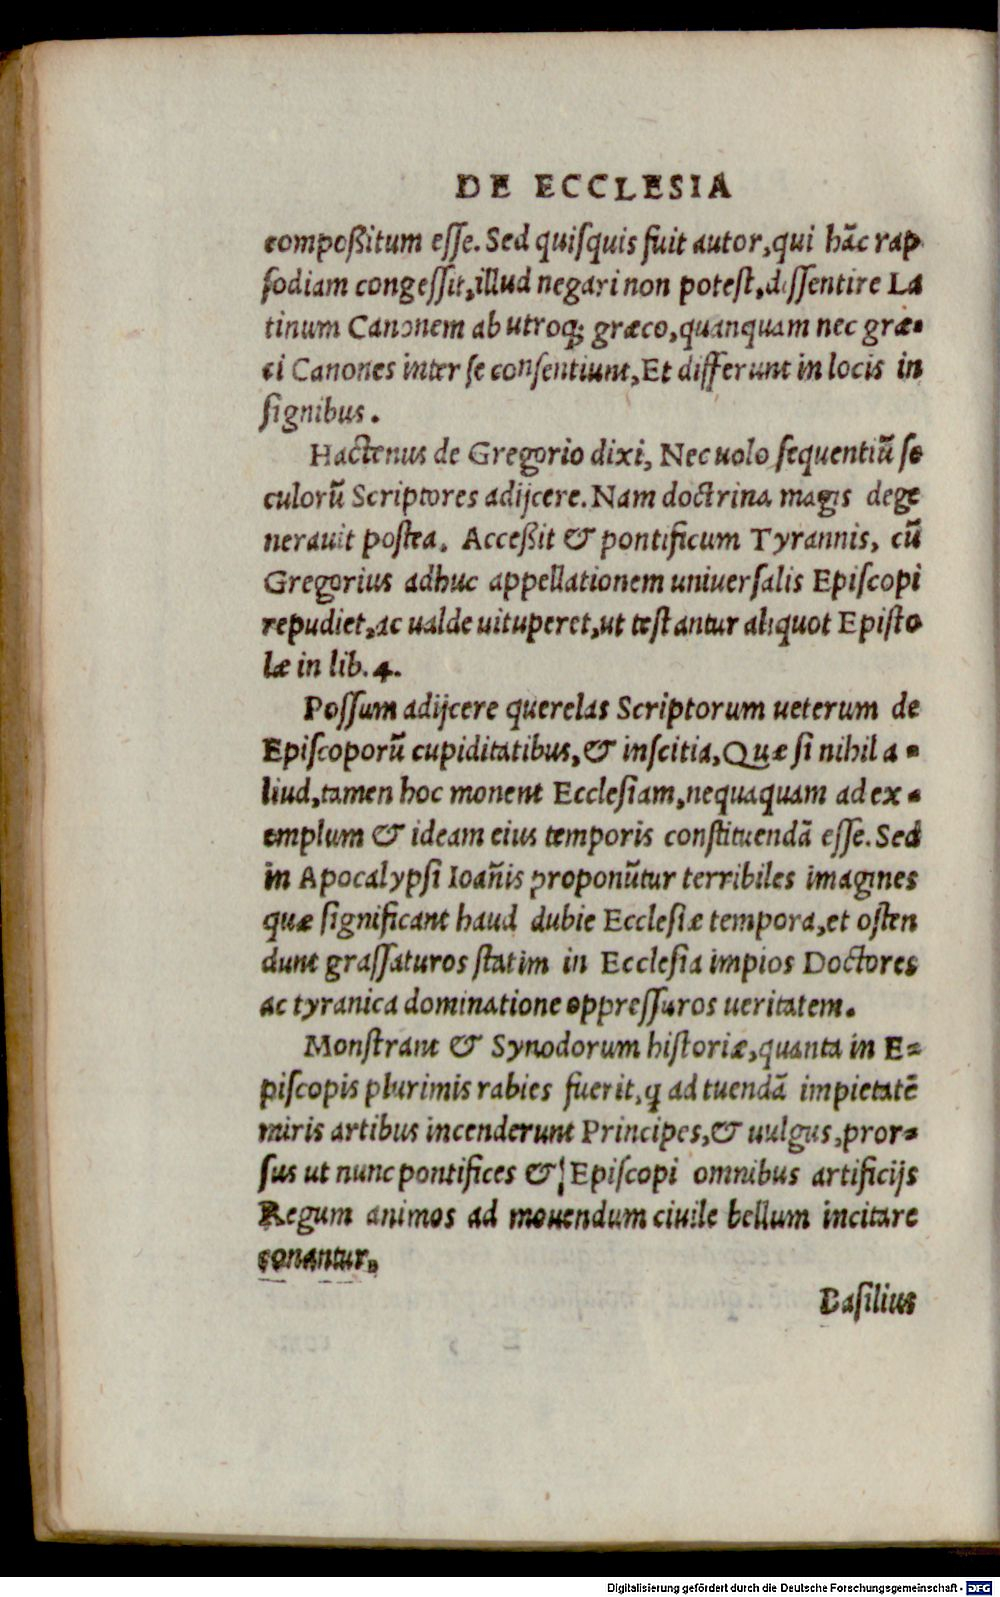 DE ECCLESIA
compoßitum eſſe. Sed quiſquis fuit autor, qui hãc rap
ſodiam congeſſit, illud negari non poteſt, diſſentire La
tinum Canonem ab utroq; græco, quanquam nec græ-
ci Canones inter ſe conſentiunt, Et differunt in locis in
ſignibus.
Hactenus de Gregorio dixi, Nec uolo ſequentiũ ſe
culorũ Scriptores adijcere. Nam doctrina magis dege
nerauit poſtea. Acceßit & pontificum Tyrannis, cũ
Gregorius adhuc appellationem uniuerſalis Epiſcopi
repudiet, ac ualde uituperet, ut teſtantur aliquot Epiſto
læ in lib. 4.
Poſſum adijcere querelas Scriptorum ueterum de
Epiſcoporũ cupiditatibus, & inſcitia, Quæ ſi nihil a-
liud, tamen hoc monent Eccleſiam, nequaquam ad ex-
emplum & ideam eius temporis conſtituendã eſſe. Sed
in Apocalypſi Ioañis proponũtur terribiles imagines
quæ ſignificant haud dubie Eccleſiæ tempora, et oſten
dunt graſſaturos ſtatim in Eccleſia impios Doctores
ac tyranica dominatione oppreſſuros ueritatem.
Monſtrant & Synodorum hiſtoriæ, quanta in E-
piſcopis plurimis rabies fuerit, q ad tuendã impietatẽ
miris artibus incenderunt Principes, & uulgus, pror-
ſus ut nunc pontifices & Epiſcopi omnibus artificijs
Regum animos ad mouendum ciuile bellum incitare
conantur.
Baſilius
Digitalisierung gefördert durch die Deutsche Forschungsgemeinschaft - DFG